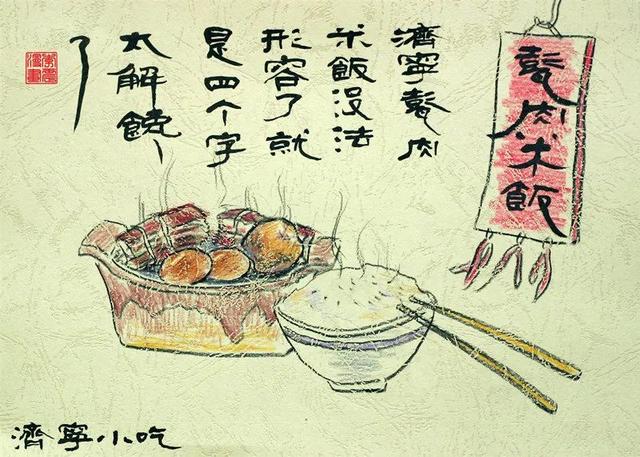 甏肉米飯
濟寧甏肉
米飯没法
形容了就
是四个字
太解饞
了
濟寧小吃